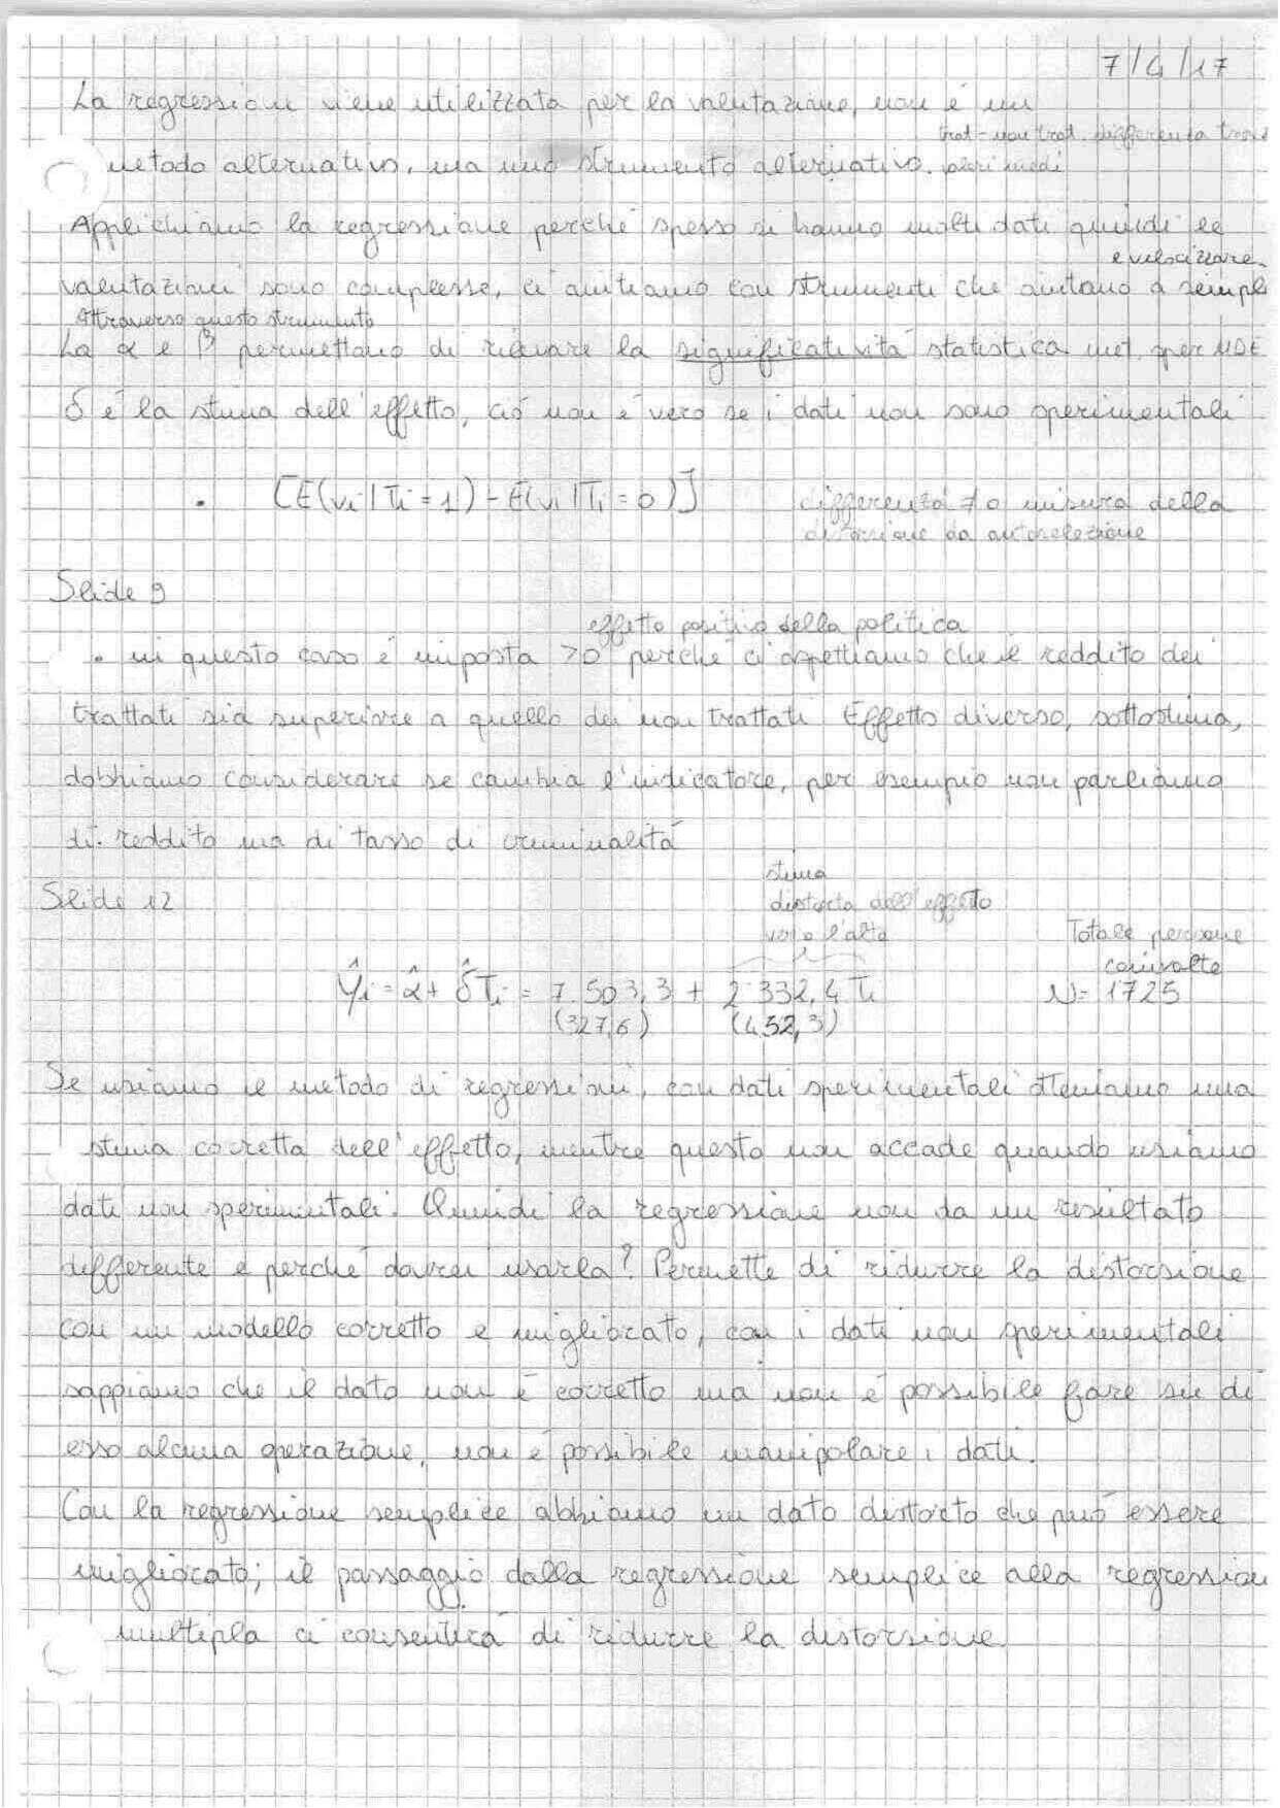 7/4/17
La regressione viene utilizzata per la valutazione, non è un
trat - non trat. differenza tra
metodo alternativo, ma uno strumento alternativo. valori medi
Applichiamo la regressione perché spesso si hanno molti dati quindi le
e velocizzare.
valutazioni sono complesse, ci aiutiamo con strumenti che aiutano a sempl
Attraverso questo strumento
La α e β permettono di ricavare la significatività statistica met. per
δ è la stima dell'effetto, ciò non è vero se i dati non sono sperimentali
• [E(vi | Ti = 1) - E(vi | Ti = 0)] differenza ≠ 0 misura della
distorsione da autoselezione
Slide 9
effetto positivo della politica
• in questo caso è imposta >0 perché ci aspettiamo che il reddito dei
trattati sia superiore a quello dei non trattati Effetto diverso, sottostima,
dobbiamo considerare se cambia l'indicatore, per esempio non parliamo
di reddito ma di tasso di criminalità
stima
Slide 12 distorta dell'effetto
verso l'alto Totale persone
coinvolte
Ŷi = α̂ + δ̂Ti = 7.503,3 + 2.332,4 Ti N = 1725
(327,6) (452,3)
Se usiamo il metodo di regressioni, con dati sperimentali otteniamo una
stima corretta dell'effetto, mentre questo non accade quando usiamo
dati non sperimentali. Quindi la regressione non da un risultato
differente e perché dovrei usarla? Permette di ridurre la distorsione
con un modello corretto e migliorato, con i dati non sperimentali
sappiamo che il dato non è corretto ma non è possibile fare su di
esso alcuna operazione, non è possibile manipolare i dati.
Con la regressione semplice abbiamo un dato distorto che può essere
migliorato; il passaggio dalla regressione semplice alla regression
multipla ci consentirà di ridurre la distorsione.